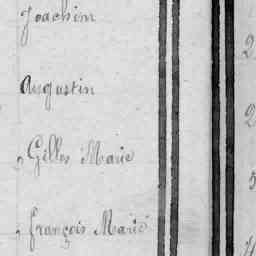 Joachim
Augustin
Gilles Marie
François Marie